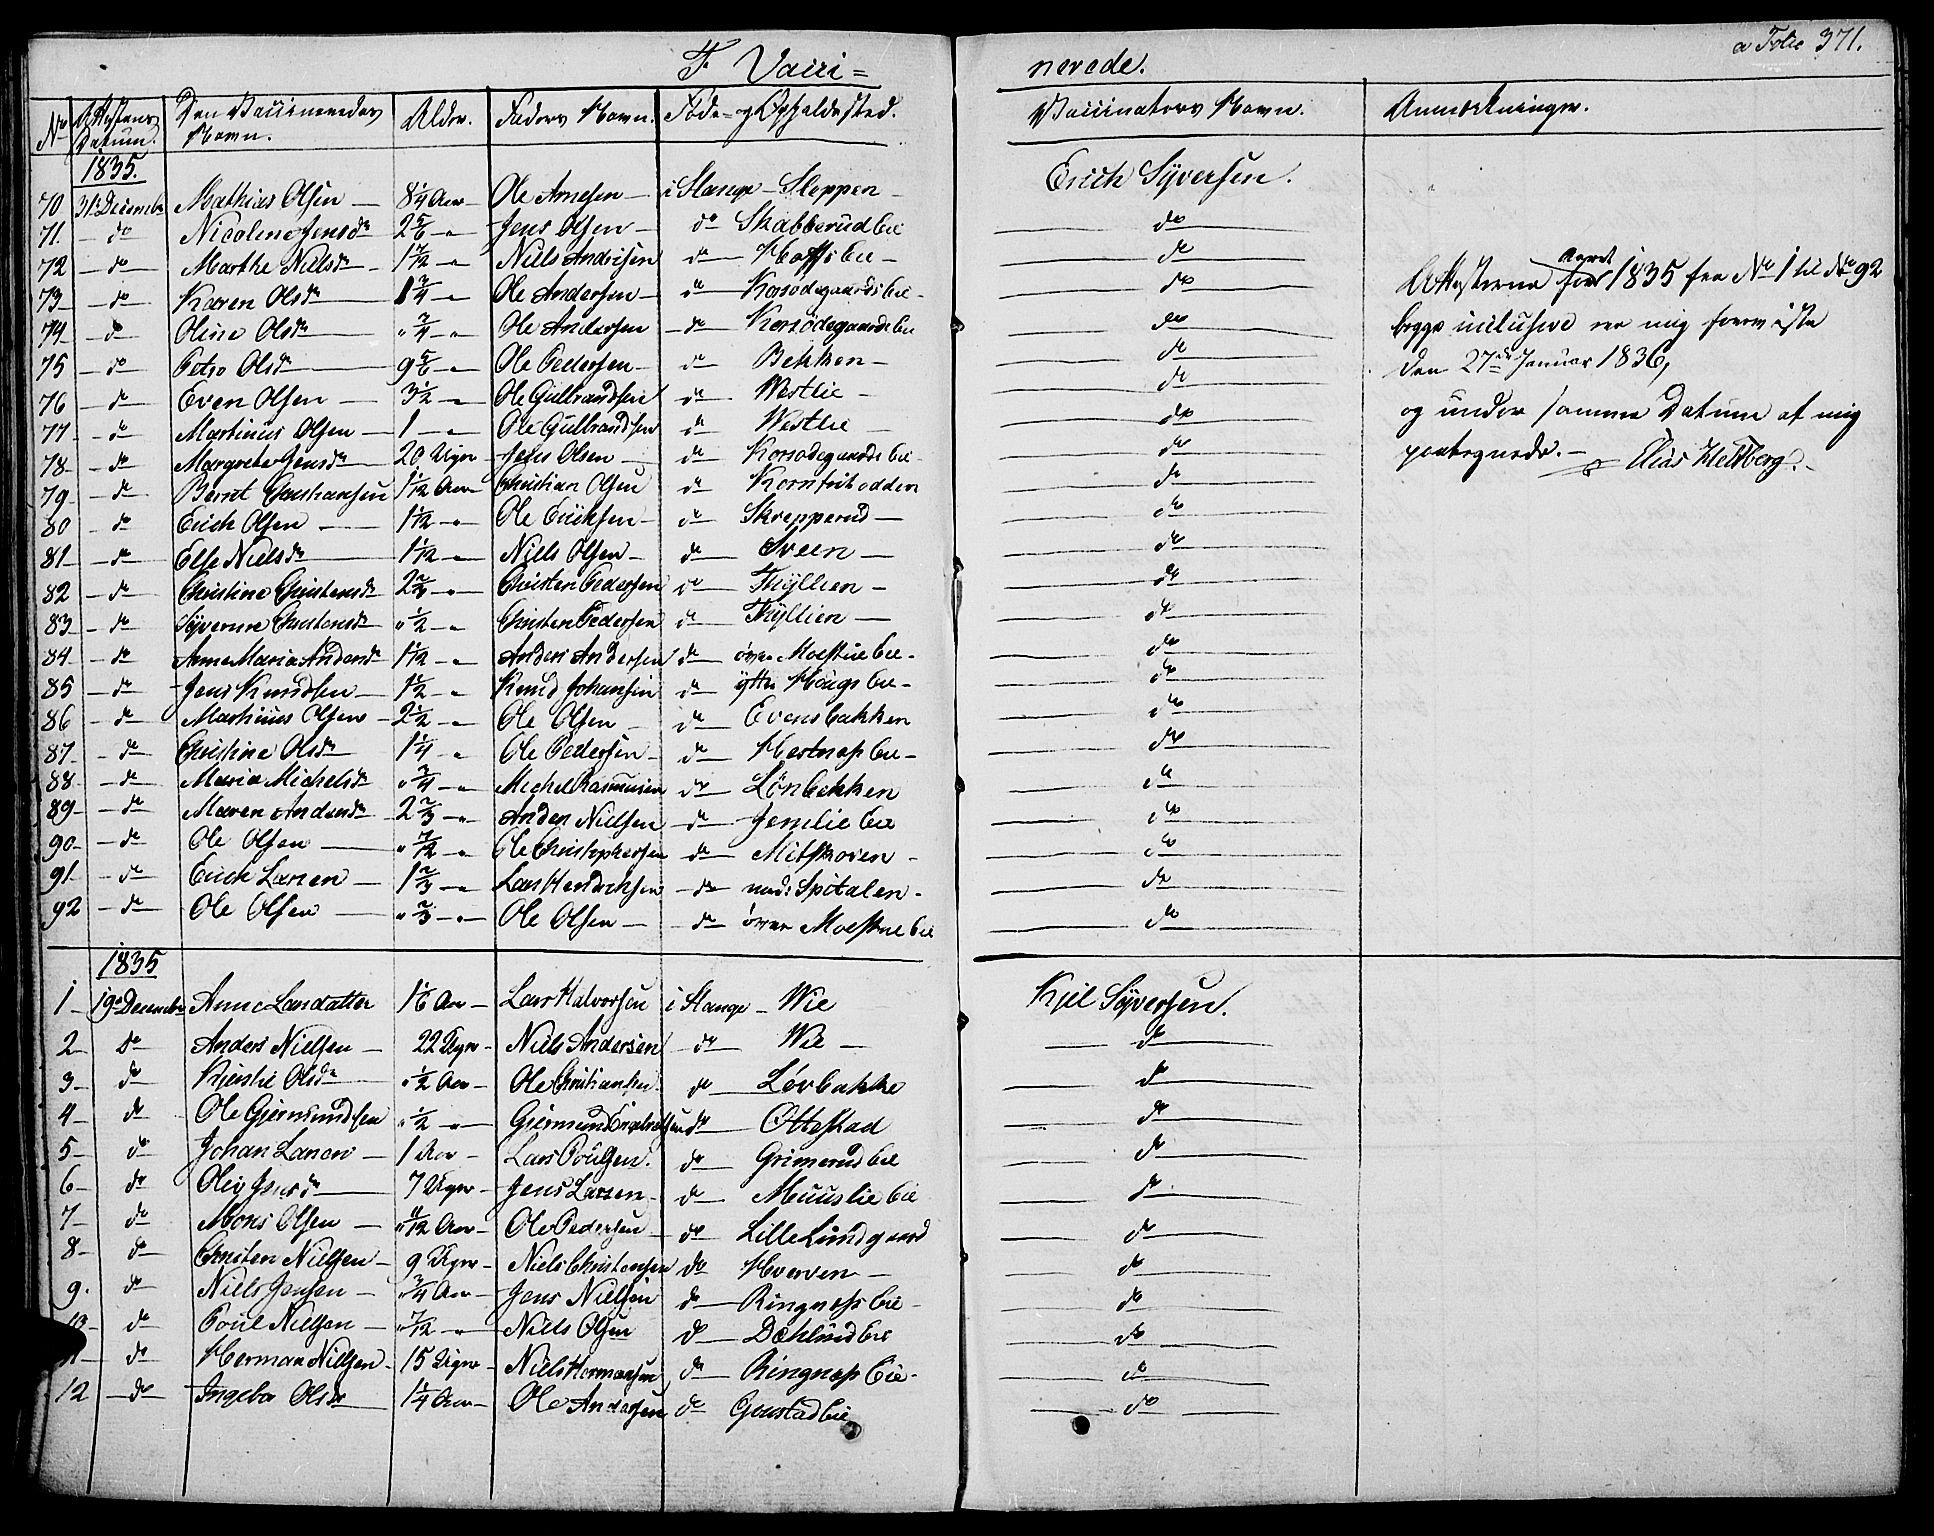 a Folio 371.
F. Vacci= nerede.
No Attestens Datum. Den Vaccineredes Navn. Alder. Faders Navn. Føde- og Opholdssted. Vaccinators Navn. Anmærkninger.
1835.
70 31te Decembr Mathias Olsen 8 1/4 Aar Ole Arnesen i Stange Sleppen Erich Syversen.
71. do Nicoline Jensdr 2 5/6 " Jens Olsen do Skabberud eie do
72 do Marthe Nielsdr 1 7/12 " Niels Andersen do Hoffs eie do
73 do Karen Olsdr 1 3/4 " Ole Andersen do Korsødegaards eie do
74 do Oline Olsdr " 3/4 " Ole Andersen do Korsødegaards eie do
75 do Petro Olsdr 9 5/6 " Ole Pedersen do Bekken do
76 do Even Olsen 3 1/2 " Ole Gulbrandsen do Westlie do
77 do Martinus Olsen 1 " Ole Gulbrandsen do Westlie do
78 do Margrete Jensdr 20 Uger Jens Olsen do Korsødegaards eie do
79 do Bernt Christiansen 1 1/12 Aar Christian Olsen do Kornfritodden do
80 do Erich Olsen 1 1/12 " Ole Erichsen do Skrepperud do
81 do Else Nielsdr 1 1/12 " Niels Olsen do Sveen do
82 do Christine Christensdr 2 2/3 " Christen Pedersen do Thyllien do
83 do Syverine Christensdr " 1/2 " Christen Pedersen do Thyllien do
84 do Anne Maria Andersdr 1 1/12 " Anders Andersen do øvre Moestue eie do
85 do Jens Knudsen 1 1/2 " Knud Johansen do yttre Haugs eie do
86 do Martinus Olsen 2 1/2 " Ole Olsen do Evensbakken do
87 do Christine Olsdr 1 1/4 " Ole Pedersen do Hestnæs eie do
88 do Maria Michelsdr " 3/4 " Michel Rasmusen do Lønbakken do
89 do Maren Andersdr 2 2/3 " Anders Nielsen do Jemlie eie do
90 do Ole Olsen " 7/12 " Ole Christophersen do Mitskoven do
91 do Erich Larsen 1 2/3 " Lars Hendrichsen do ned: Spitalen do
92 do Ole Olsen " 2/3 " Ole Olsen do øvre Moestue eie do
Attesterne for Aaret 1835 fra No 1 til No 92
begge inclusive ere mig foreviste
den 27de Januar 1836,
og under samme Datum af mig
paategnede.
1835
1 19de Decembr Anne Larsdatter 1 1/6 Aar Lars Halvorsen i Stange Wie Kjel Syversen.
2 do Anders Nielsen 22 Uger Niels Andersen do Wie do
3 do Kjerstie Olsdr " 1/2 Aar Ole Christiansen do Løvbakke do
4 do Ole Gjermundsen " 1/2 " Gjermund do Ottestad do
5 do Johan Larsen 1 Aar Lars Poulsen. do Grimerud eie do
6 do Olev Jensdr 7 Uger Jens Larsen do Muuslie eie do
7 do Mons Olsen " 11/12 Aar Ole Pedersen do Lille Lundgaard do
8 do Christen Nielsen 9 Uger Niels Christensen do Hverven do
9. do Niels Jensen " 3/4 Aar Jens Nielsen do Ringnæs eie do
10 do Poul Nielsen " 7/12 " Niels Olsen do Dæhlind eie do
11 do Herman Nielsen 15 Uger Niels Hermansen do Ringnæs eie do
12 do Ingebor Olsdr 1 1/4 Aar Ole Andersen do Gaustad eie do